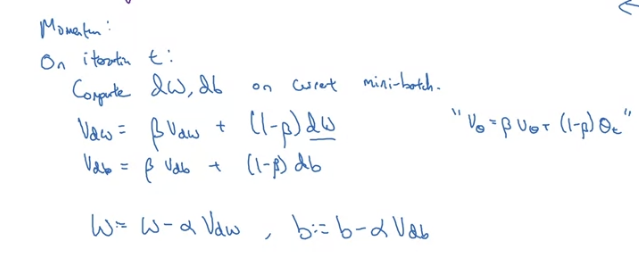 Momentum:
On iteration t:
Compute dW, db on current mini-batch.
Vdw = β Vdw + (1-β) dW
"Vθ = β Vθ + (1-β) θt"
Vdb = β Vdb + (1-β) db
W = W - α Vdw , b := b - α Vdb